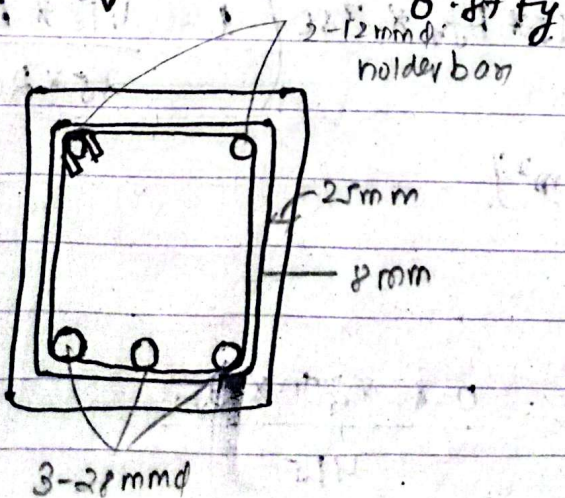 0.87 fy
2-12mmϕ
holder bar
25mm
8mm
3-28mmϕ